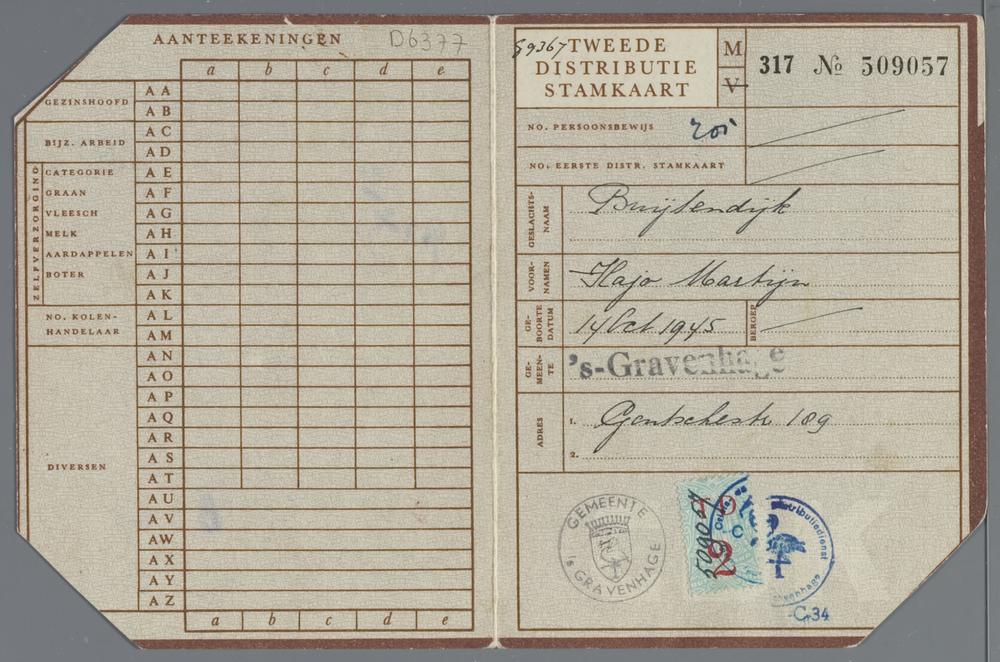 AANTEEKENINGEN D6377
a b c d e
GEZINSHOOFD
A A
A B
BIJZ. ARBEID
A C
A D
ZELFVERZORGING
CATEGORIE A E
GRAAN A F
VLEESCH A G
MELK A H
AARDAPPELEN A I
BOTER A J
A K
NO. KOLEN-
HANDELAAR
A L
A M
A N
A O
A P
A Q
A R
DIVERSEN
A S
A T
A U
A V
A W
A X
A Y
A Z
a b c d e
59367 TWEEDE
DISTRIBUTIE
STAMKAART
M
V
317 № 509057
NO. PERSOONSBEWIJS
NO. EERSTE DISTR. STAMKAART
GESLACHTS-
NAAM
Buijtendijk
VOOR-
NAMEN
Hajo Martijn
GE-
BOORTE
DATUM
14 Oct 1945
BEROEP
GE-
MEEN-
TE
's-Gravenhage
ADRES
1. Gentschestr 189
2.
GEMEENTE
's GRAVENHAGE
509057
2
distributiedienst
C 34